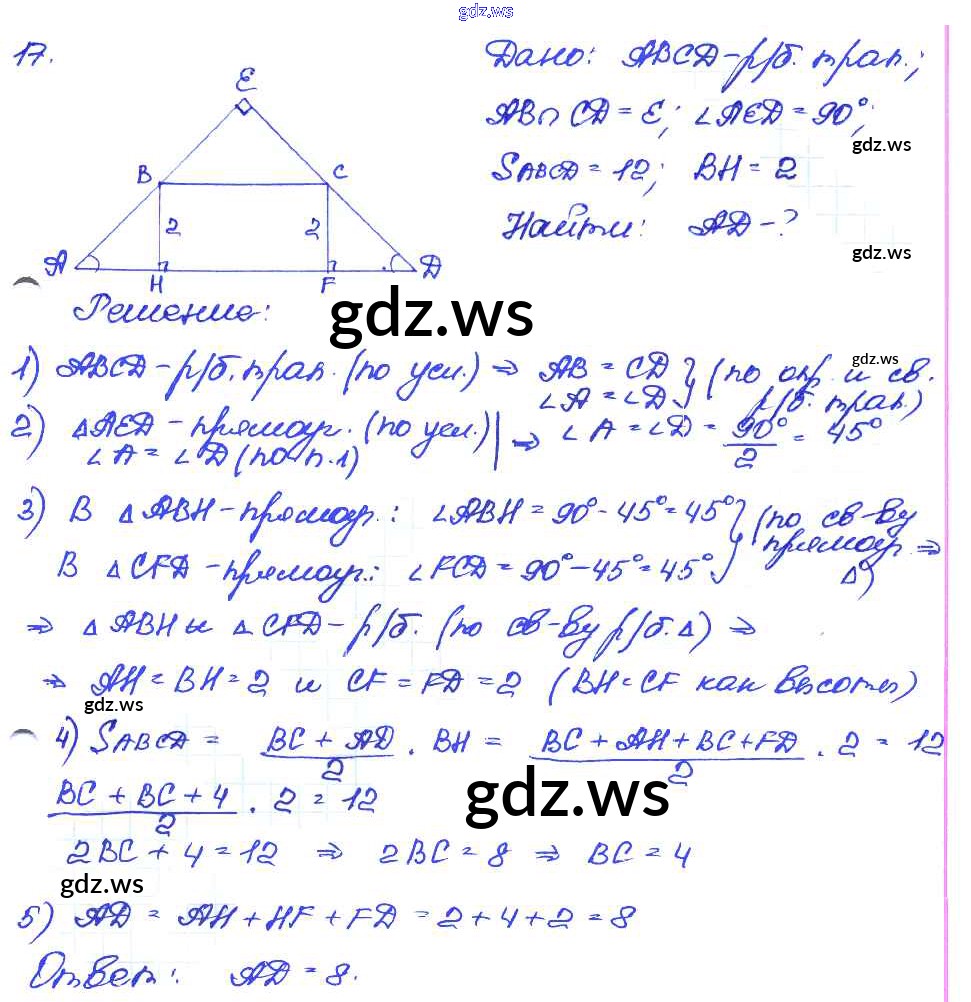 gdz.ws
17.
E
B C
2 2
A H F D
Дано: ABCD-р/б. трап.;
AB∩CD=E; ∠AED=90°;
gdz.ws
SABCD=12; BH=2
Найти: AD-?
gdz.ws
Решение:
gdz.ws
1) ABCD-р/б. трап. (по усл.) ⇒ AB=CD
∠A=∠D } (по опр. и св. р/б. трап.)
gdz.ws
2) △AED-прямоуг. (по усл.)
∠A=∠D (по п.1) | ⇒ ∠A=∠D=90°/2=45°
3) В △ABH-прямоуг.: ∠ABH=90°-45°=45°
В △CFD-прямоуг.: ∠FCD=90°-45°=45° } (по св-ву прямоуг. △) ⇒
⇒ △ABH и △CFD-р/б. (по св-ву р/б. △) ⇒
⇒ AH=BH=2 и CF=FD=2 (BH=CF как высоты)
gdz.ws
4) SABCD = (BC+AD)/2 · BH = (BC+AH+BC+FD)/2 · 2=12
(BC+BC+4)/2 · 2=12
gdz.ws
2BC+4=12 ⇒ 2BC=8 ⇒ BC=4
gdz.ws
5) AD=AH+HF+FD=2+4+2=8
Ответ: AD=8.